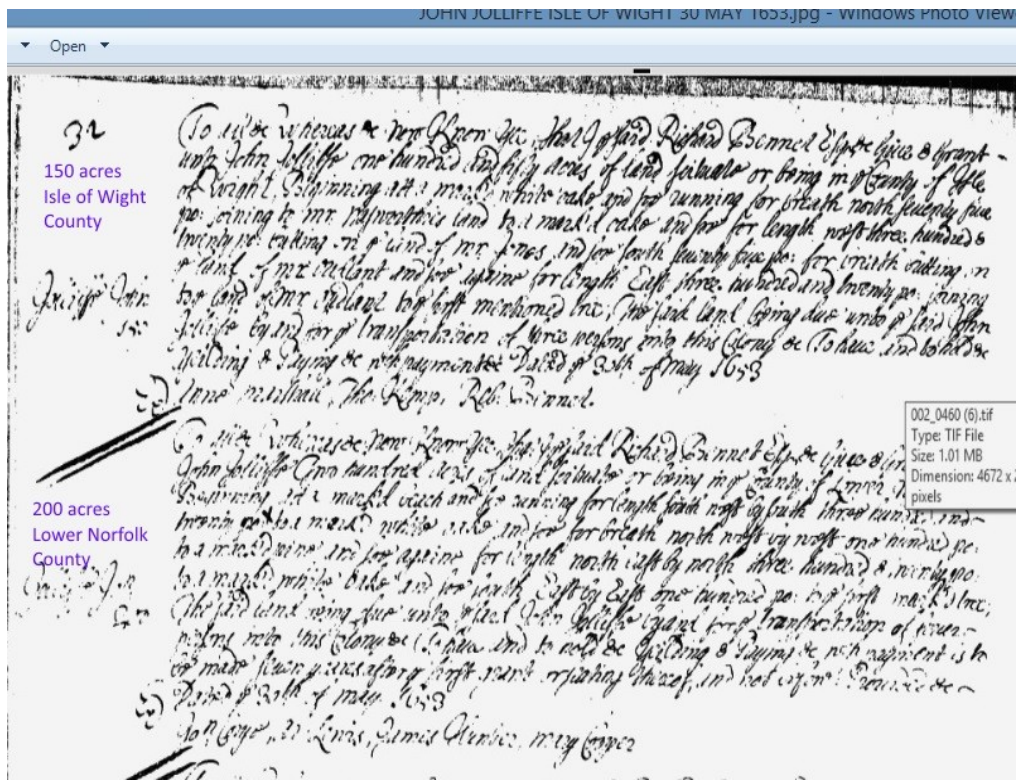 JOHN JOLLIFFE ISLE OF WIGHT 30 MAY 1653.jpg - Windows Photo View
Open
32
150 acres
Isle of Wight
County
To all &c Whereas &c Now Know yee, that I ye said Richard Bennet Esqr &c give & grant
unto John Jolliffe one hundred and fifty acres of land scituate or being in ye County of Isle
of Wight, Beginning att a markt white oake and soe running for breath north seventy five
po: joining to mr. land to a mark'd oake and soe for length west three hundred &
twenty po: butting on ye land of mr. Jones and soe south seventy five po: for breath butting on
ye land of mr and soe againe for length East three hundred and twenty po: joining
to ye land of mr to ye first mentioned tree, the said land being due unto ye said John
Jolliffe by and for ye transportation of three persons into this Colony &c To have and to hold &c
Yeilding & Paying &c wch payment &c Dated ye 30th of May 1653
Jolliffe John
150
Anne Marshall, Tho: Kemp, Rob: Binnel.
002_0460 (6).tif
Type: TIF File
Size: 1.01 MB
Dimension: 4672 x 2
pixels
200 acres
Lower Norfolk
County
To all &c Whereas &c Now Know yee, that I ye said Richard Bennet Esqr &c give &
John Jolliffe Two hundred acres of land scituate or being in ye County of Lower
Beginning at a markd and soe running for length south west by south three hundred and
twenty po: to a markd white oake and soe for breath north west by west one hundred po:
to a marked pine and soe againe for length north east by north three hundred & twenty po:
to a marked white oake and soe south East by East one hundred po: to ye first markd tree,
The said land being due unto ye said John Jolliffe by and for ye transportation of
persons into this Colony &c To have and to hold &c Yeilding & Paying &c wch payment is to
be made seven yeares after ye first grant or seating thereof, and not before Provided &c
Dated ye 30th of May 1653
Lewis, James, Mary Cooper